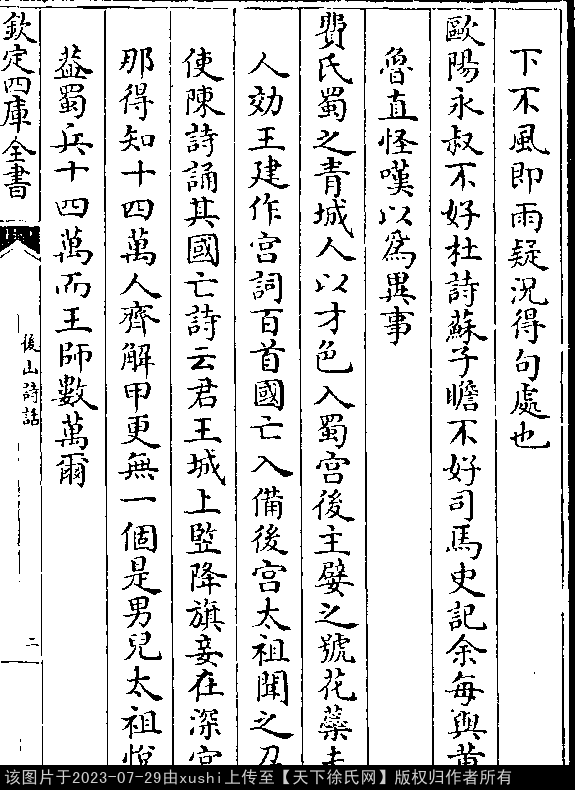 下不風即雨疑況得句處也
歐陽永叔不好杜詩蘇子瞻不好司馬史記余每與黄
魯直怪嘆以爲異事
費氏蜀之青城人以才色入蜀宫後主嬖之號花蘂夫
人効王建作宫詞百首國亡入備後宫太祖聞之召
使陳詩誦其國亡詩云君王城上竪降旗妾在深宫
那得知十四萬人齊解甲更無一個是男兒太祖悦
葢蜀兵十四萬而王師數萬爾
欽定四庫全書
後山詩話
二
该图片于2023-07-29由xushi上传至【天下徐氏网】版权归作者所有